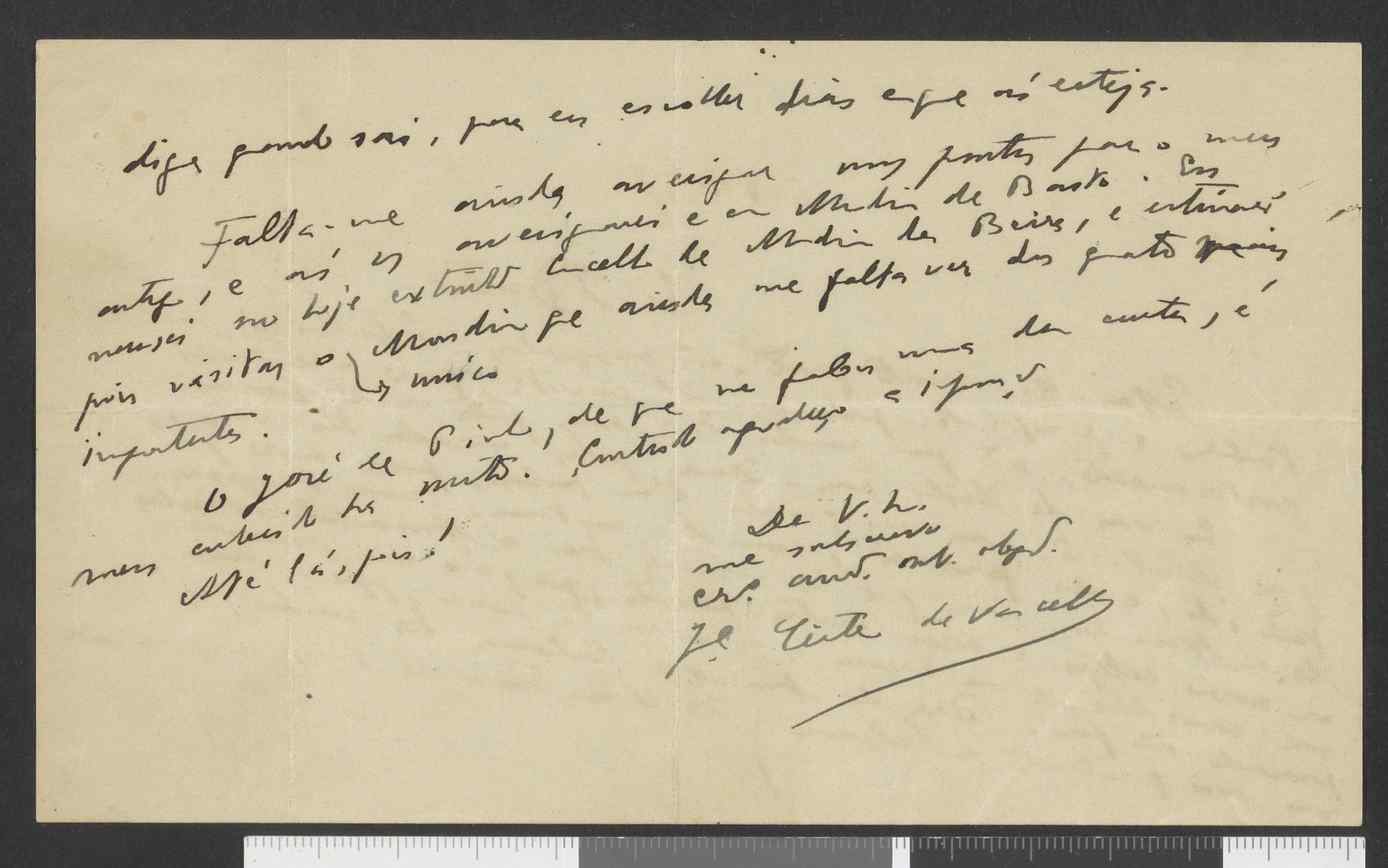 diga quando sai, para eu escolher dias em que aí esteja.
Falta-me ainda averiguar uns pontos para o meu
artigo, e aí os averiguarei e em Mondim de Basto. Eu
nasci no hoje extinto concelho de Mondim da Beira, e estimarei
pois visitar o Mondim que ainda me falta ver dos quatro mais
↳ único
importantes.
O José de Pinho, de que me falou numa das cartas, é
meu conhecido há muito. Contudo agradeço a informação
Até lá, pois!
De V. Ex.
me subscrevo
cr.do am.do obg.do
J.e Leite de Vasconcellos